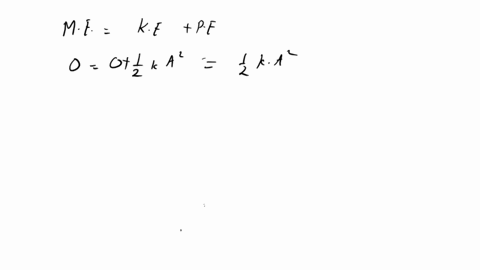 M.E. = K.E + P.E
0 = 0+1/2 k A² = 1/2 k.A²